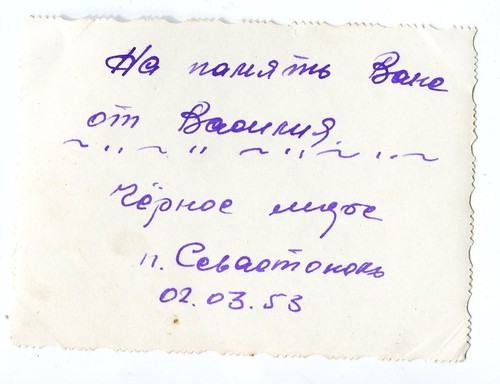 На память Ване
от Василия.
Чёрное море
п. Севастополь
02.03.53